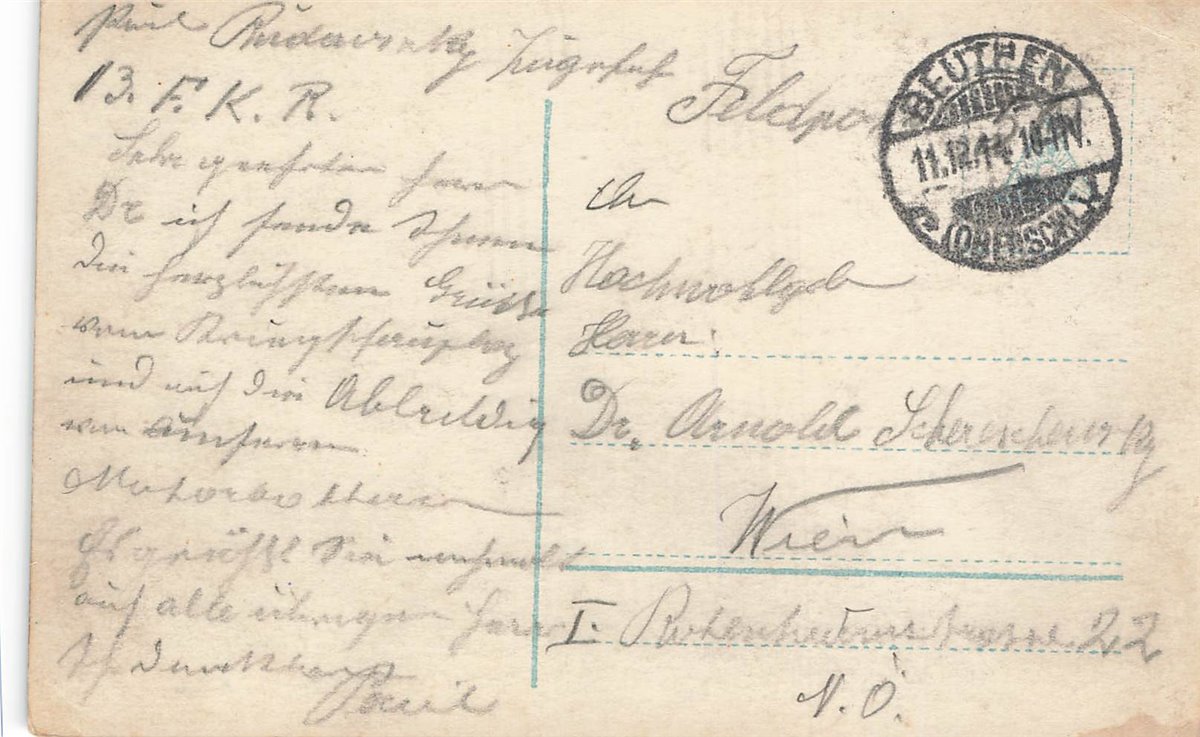 Paul Rudavsky Zugsfhr
13. F. K. R.
Sehr geehrter Herr
Dr ich sende Ihnen
die herzlichsten Grüße
vom Kriegsschauplaz
und auf die Abbildig
von unseren
Es grüßt Sie nochmals
auf alle übrigen Herrn
Paul
Feldpo
BEUTHEN
11.12.14. 10-11V.
(OBERSCHL.)
An
Hochwohlgeb
Herrn:
Dr. Arnold Scherschewsky
Wien
I. Rotenturmstrasse 22
N. Ö.